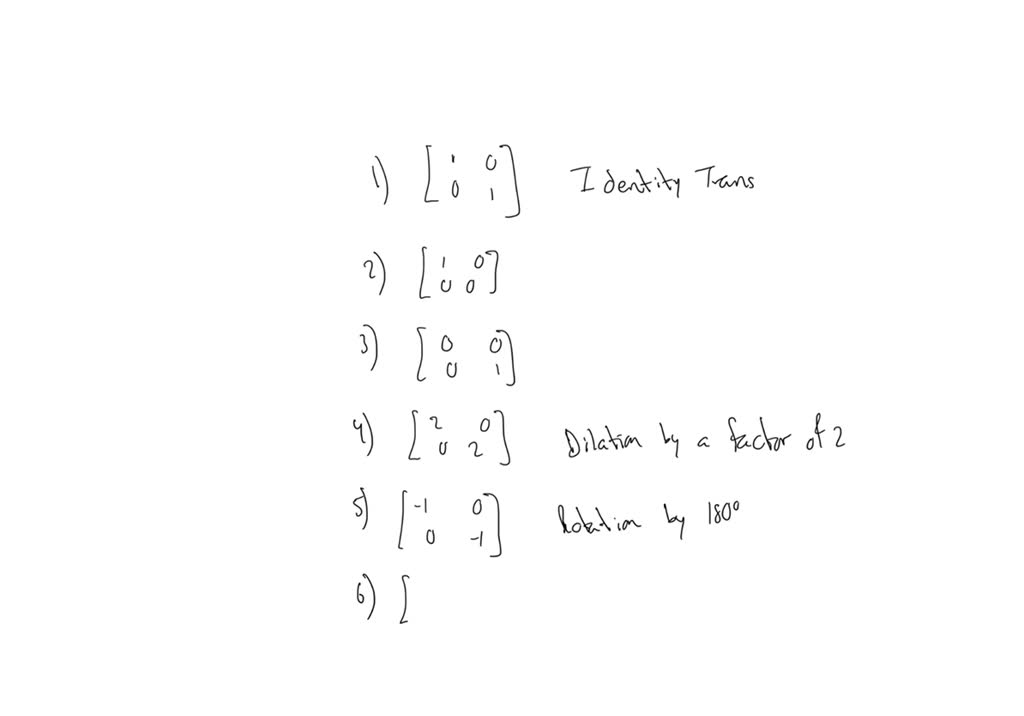 1) [ 1 0 ] Identity Trans
0 1
2) [ 1 0 ]
0 0
3) [ 0 0 ]
0 1
4) [ 2 0 ] Dilation by a factor of 2
0 2
5) [ -1 0 ] Rotation by 180°
0 -1
6) [